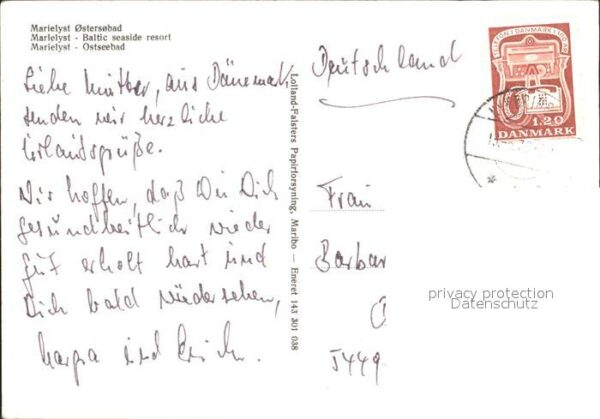 Marielyst Østersøbad
Marielyst - Baltic seaside resort
Marielyst - Ostseebad
Liebe Mutter, aus Dänemark
senden wir herzliche
Urlaubsgrüße.
Wir hoffen, daß Du Dich
gesundheitlich wieder
gut erholt hast und
Dich bald wiedersehen,
und
Lolland-Falsters Papirforsyning, Maribo — Eneret 143 301 038
Deutschland
TELEFON I DANMARK
1.20
DANMARK
Frau
Barbar
Ö
privacy protection
Datenschutz